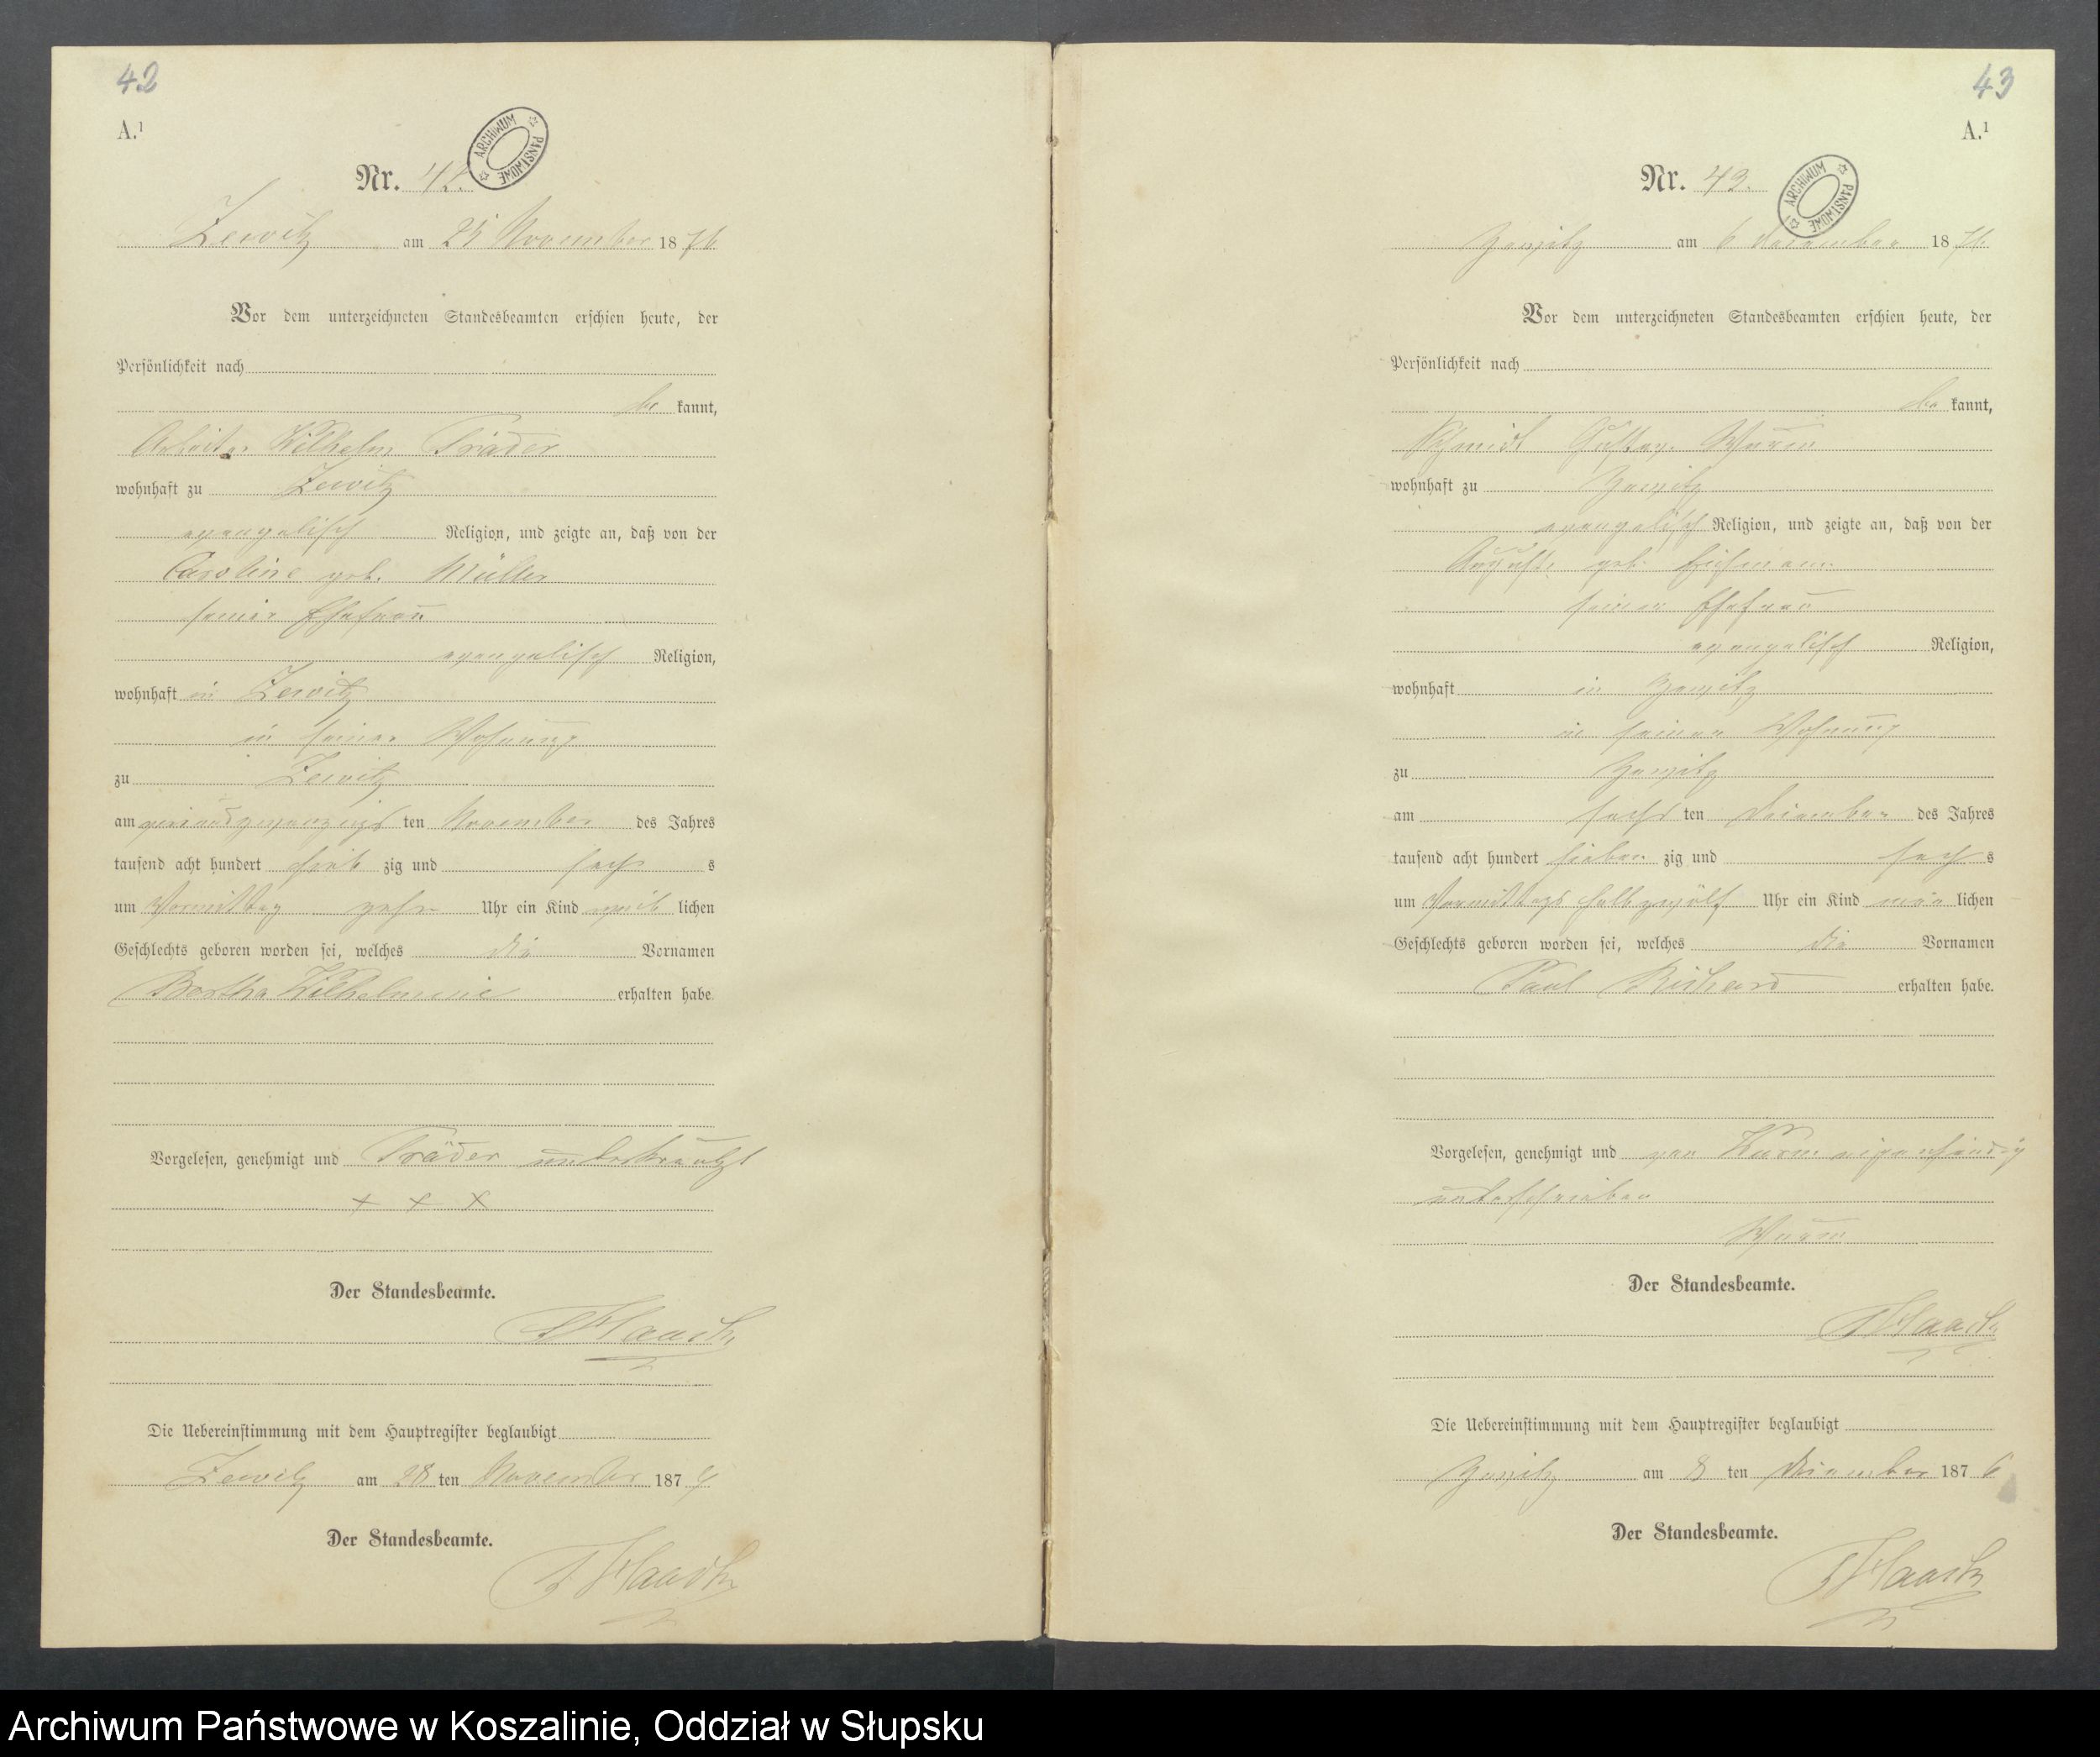 42
A.1
ARCHIWUM PAŃSTWOWE
Nr. 42.
Zewitz am 25 November 1876
Vor dem unterzeichneten Standesbeamten erschien heute, der
Persönlichkeit nach
be kannt,
Arbeiter Wilhelm Träder
wohnhaft zu Zewitz
evangelisch Religion, und zeigte an, daß von der
Caroline geb. Müller
seiner Ehefrau
evangelisch Religion,
wohnhaft in Zewitz
in seiner Wohnung
zu Zewitz
am ten November des Jahres
tausend acht hundert sieb zig und sech s
um Vormittag zehn Uhr ein Kind weib lichen
Geschlechts geboren worden sei, welches die Vornamen
Bertha Wilhelmine erhalten habe.
Vorgelesen, genehmigt und Träder unterkreutzt
+ + x
Der Standesbeamte.
Haack
Die Uebereinstimmung mit dem Hauptregister beglaubigt
Zewitz am 28 ten November 187
Der Standesbeamte.
Haack
43
A.1
ARCHIWUM PAŃSTWOWE
Nr. 43.
Zewitz am 6 December 1876
Vor dem unterzeichneten Standesbeamten erschien heute, der
Persönlichkeit nach
be kannt,
Schmidt Gustav Wurm
wohnhaft zu Zewitz
evangelisch Religion, und zeigte an, daß von der
Auguste geb.
seiner Ehefrau
evangelisch Religion,
wohnhaft in Zewitz
in seiner Wohnung
zu Zewitz
am sechs ten December des Jahres
tausend acht hundert sieben zig und sech s
um Vormittags halb zwölf Uhr ein Kind män lichen
Geschlechts geboren worden sei, welches die Vornamen
Paul Richard erhalten habe.
Vorgelesen, genehmigt und von Wurm eigenhändig
unterschrieben
Wurm
Der Standesbeamte.
Haack
Die Uebereinstimmung mit dem Hauptregister beglaubigt
Zewitz am 8 ten December 187 6
Der Standesbeamte.
Haack
Archiwum Państwowe w Koszalinie, Oddział w Słupsku